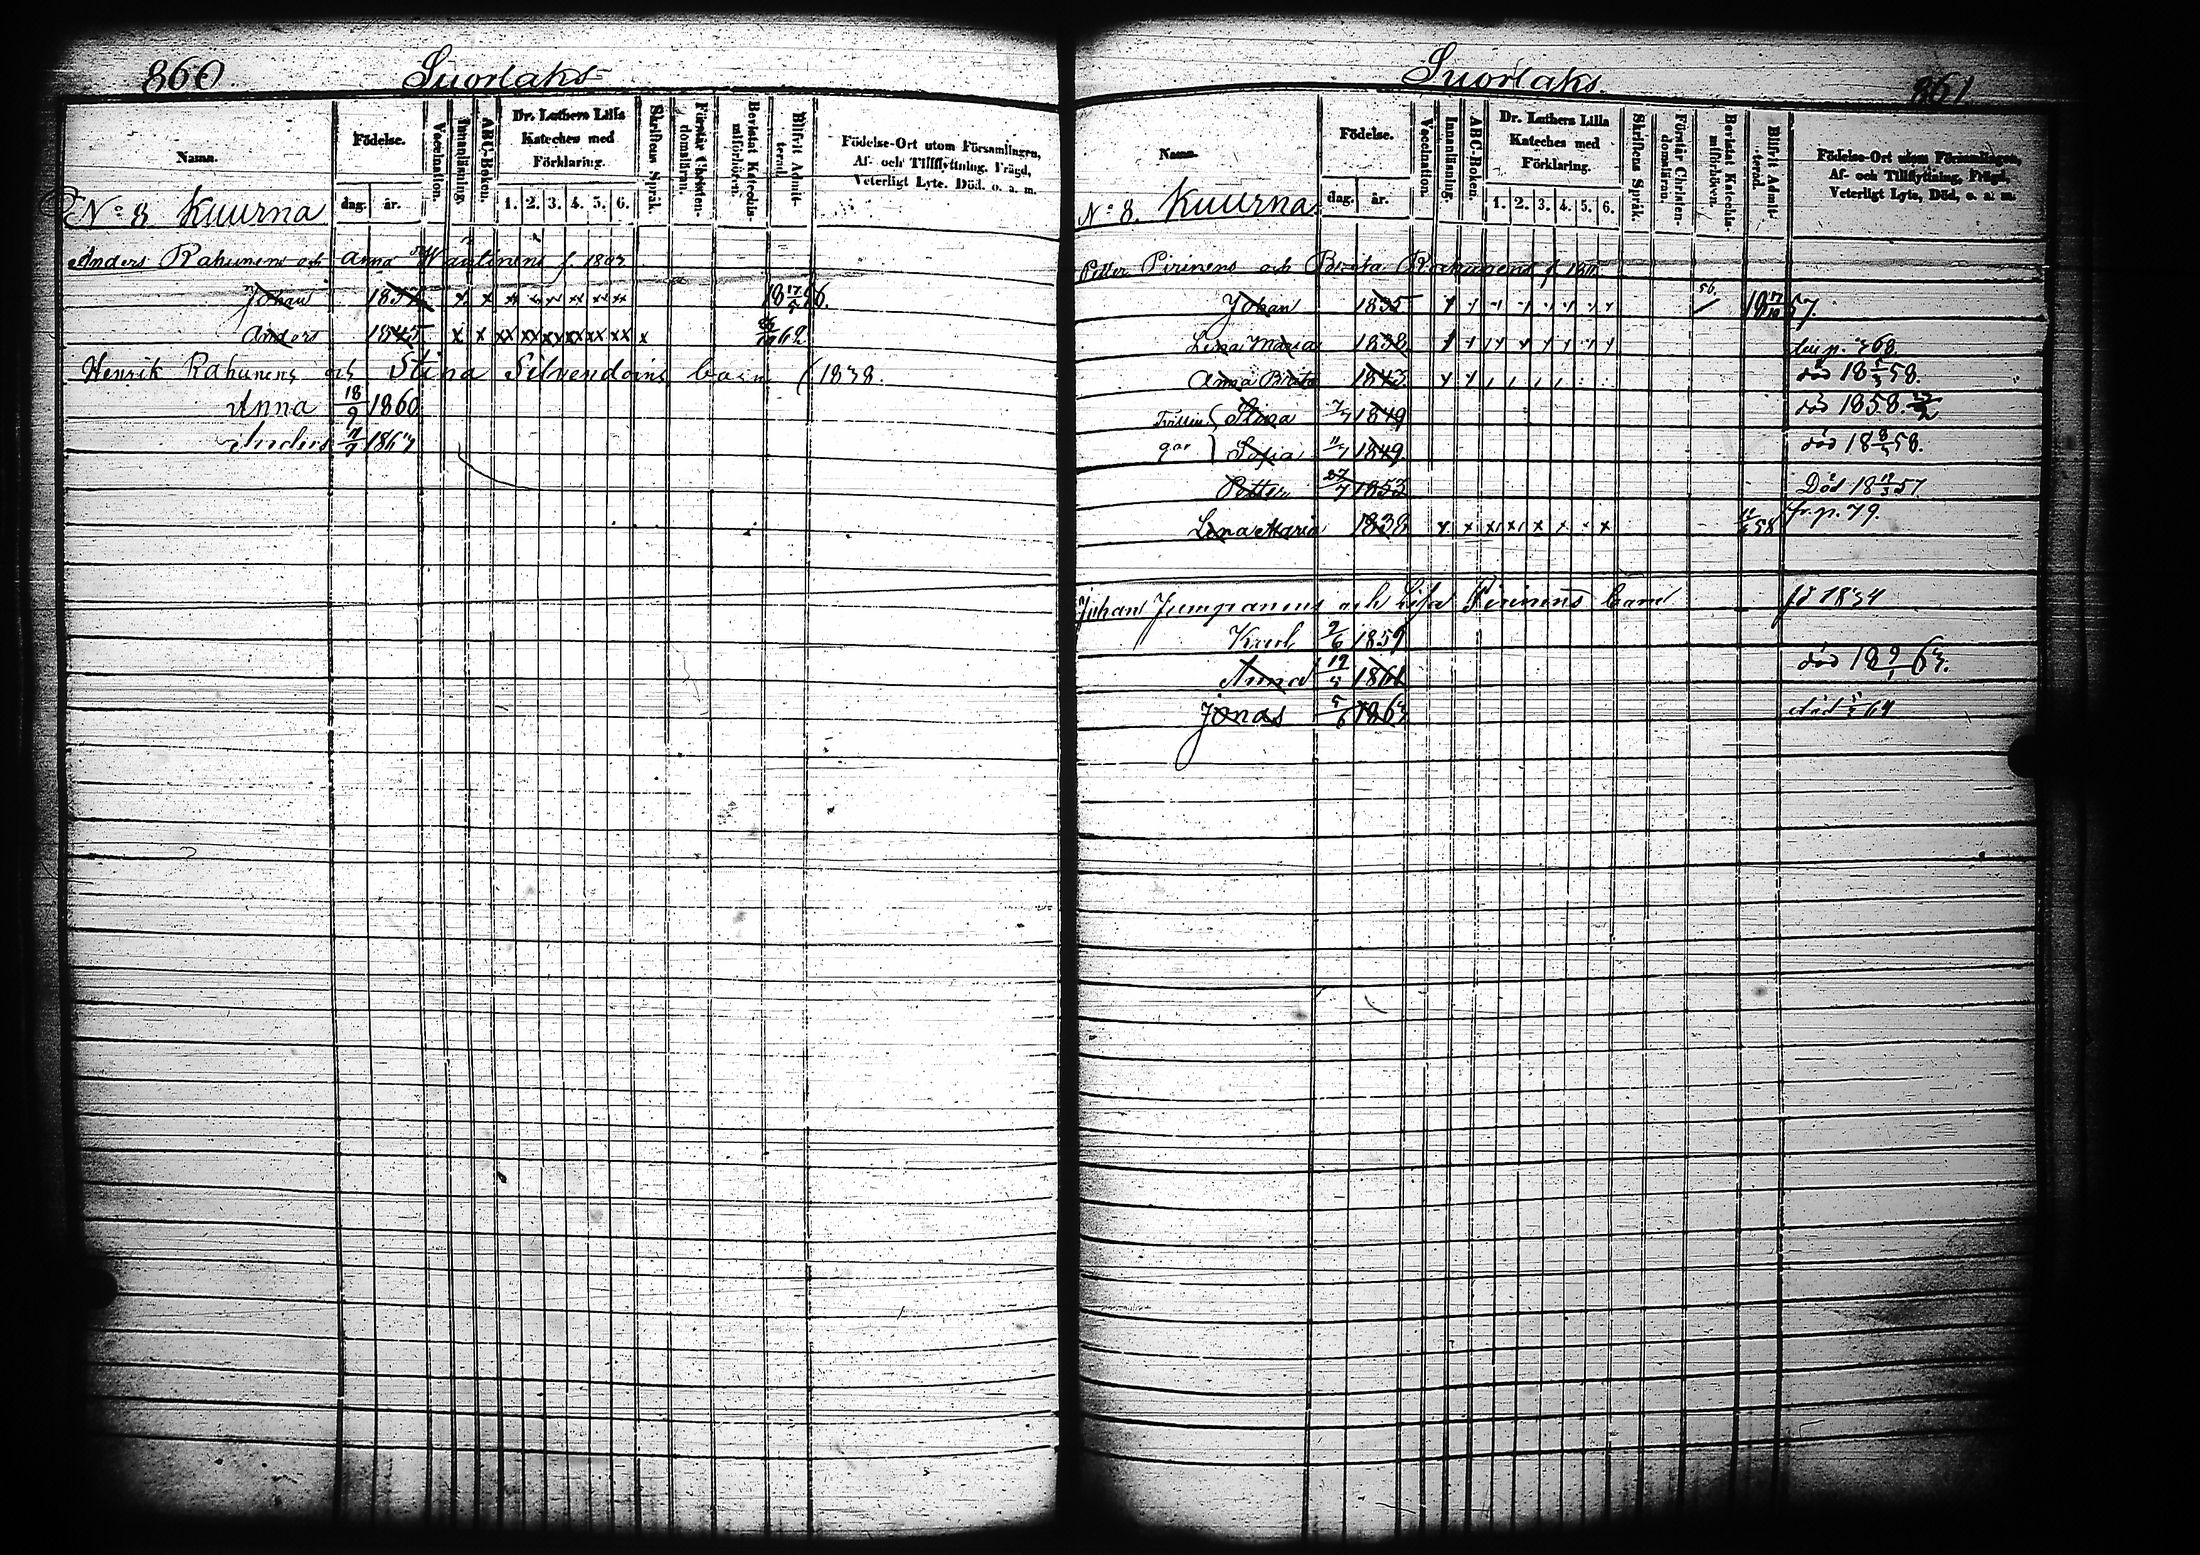 860 Suorlaks
Namn.
Födelse.
dag. år.
Vaccination.
Innanläsning.
ABC-Boken.
Dr. Luthers Lilla
Kateches med
Förklaring.
1. 2. 3. 4. 5. 6.
Skriftens Språk.
Förstår Christen-
domsläran.
Bevistat Katechis-
miförhören.
Blifvit Admit-
terad.
Födelse-Ort utom Församlingen,
Af- och Tillflyttning, Frägd,
Veterligt Lyte, Död, o. a. m.
No 8 Kuurna
Anders Rahunens och Anna Wäntinens f. 1807
Johan 18 17/5 56.
Anders 1845 62
Henrik Rahunens och Stina Silvendoins barn f 1838.
Anna 18/9 1860
Anders 1867
Suorlaks. 861
Namn.
Födelse.
dag. år.
Vaccination.
Innanläsning.
ABC-Boken.
Dr. Luthers Lilla
Kateches med
Förklaring.
1. 2. 3. 4. 5. 6.
Skriftens Språk.
Förstår Christen-
domsläran.
Bevistat Katechis-
miförhören.
Blifvit Admit-
terad.
Födelse-Ort utom Församlingen,
Af- och Tillflyttning, Frägd,
Veterligt Lyte, Död, o. a. m.
No 8. Kuurna
Petter Pirinens och Brita Rahunens f.
Johan 1835 56. 57.
Lena Maria 1838 p. 368.
Anna Brita 1843 död 18 58.
Stina 1849 död 1858
gar Sofia 1849 död 18 58.
Petter 27/7 1853 Död 18 57
Lena Maria 1838 58 fr. p. 79.
Johan Jumpanens och Lisa Pirinens barn fö 1834
Karl 2/6 1859
Anna 19/5 1861 död 18 9/1 63.
Jonas 5/6 1863 död 64